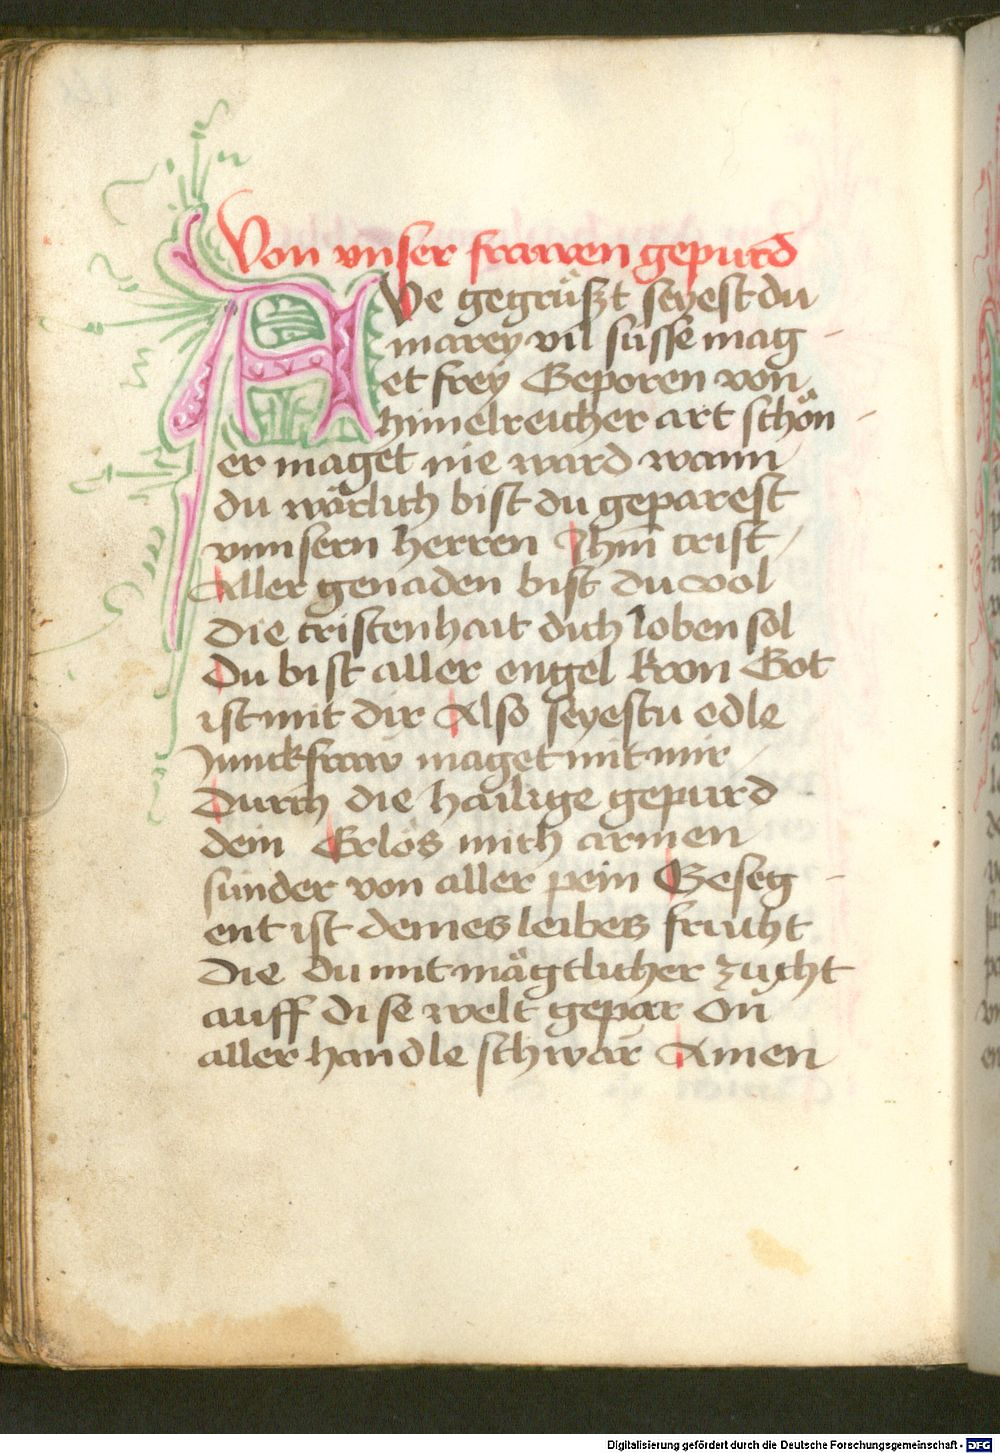 Von vnser frawen gepurd
AVe gegrüßt seyest du
marey vil süsse mag -
et frey Geporen von
himelreicher art schön -
er maget nie ward wann
du wärlich bist du geparest
vnnsern herren Jhm̄ crist
Aller genaden bist du vol
die cristenhait dich loben sol
Du bist aller engel kron Got
ist mit dir Also seyestu edle
Junckfraw maget mit mir
Durch die hailige gepurd
dein Erlös mich armen
sünder von aller pein Geseg -
ent ist deines leibes frucht
die du mit mägtlicher zucht
auff dise welt gepar on
aller handle schwär Amen
Digitalisierung gefördert durch die Deutsche Forschungsgemeinschaft - DFG